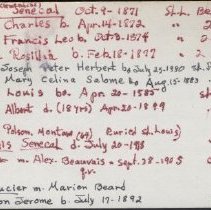 Senecal Oct. 9-1871 St.L. Be
Charles b. Apr. 14-1872 "
Francis Leo b. Oct 8-1874 " 2
Rosilia b. Feb. 18-1877 " 2
Joseph Peter Herbert b. July 25-1880 St
Mary Celina Salome b. Aug 15-1883
Louis b. Apr. 20-1885
Albert d. (18 yrs) Apr. 20-1899
Polson, Montana (69) Buried St. Louis)
Senecal d. July 20-198
m. Alex. Beauvais = Sept. 28-190
q.v.
ucier m. Marion Beard
on Jerome b. July 17-1892